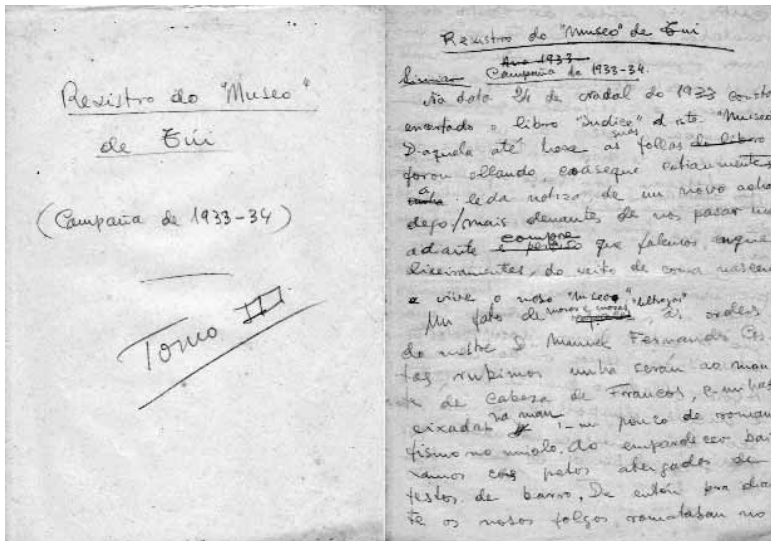 Rexistro do "Museo"
de Túi
(Campaña de 1933-34)
Tomo III
Rexistro do "Museo" de Túi
Ano 1933
Limiar Campaña de 1933-34.
Na data 24 de Nadal do 1933
encertado o libro "Indice" d "Museo
D'aquela até hoxe as suas follas do libro
foron ollando, case que
a leda notiza de un novo acha
dego/mais denantes de nos pasar
adiante é compre preciso que falemos
lixeiramentes, do xeito de coma nascen
e vive o noso "Museo"
Un fato de mozos e mozas, ás ordes
do mestre D. Manuel Fernandez
rubimos unha serán ao mon
te de Cabeza de Francos, c unhas
eixadas na man i-un pouco de roman
tismo no miolo. Ao empardecer bai
xamos cos petos ategados de
testos de barro. De entón pra dian
te os nosos folgos remataban no